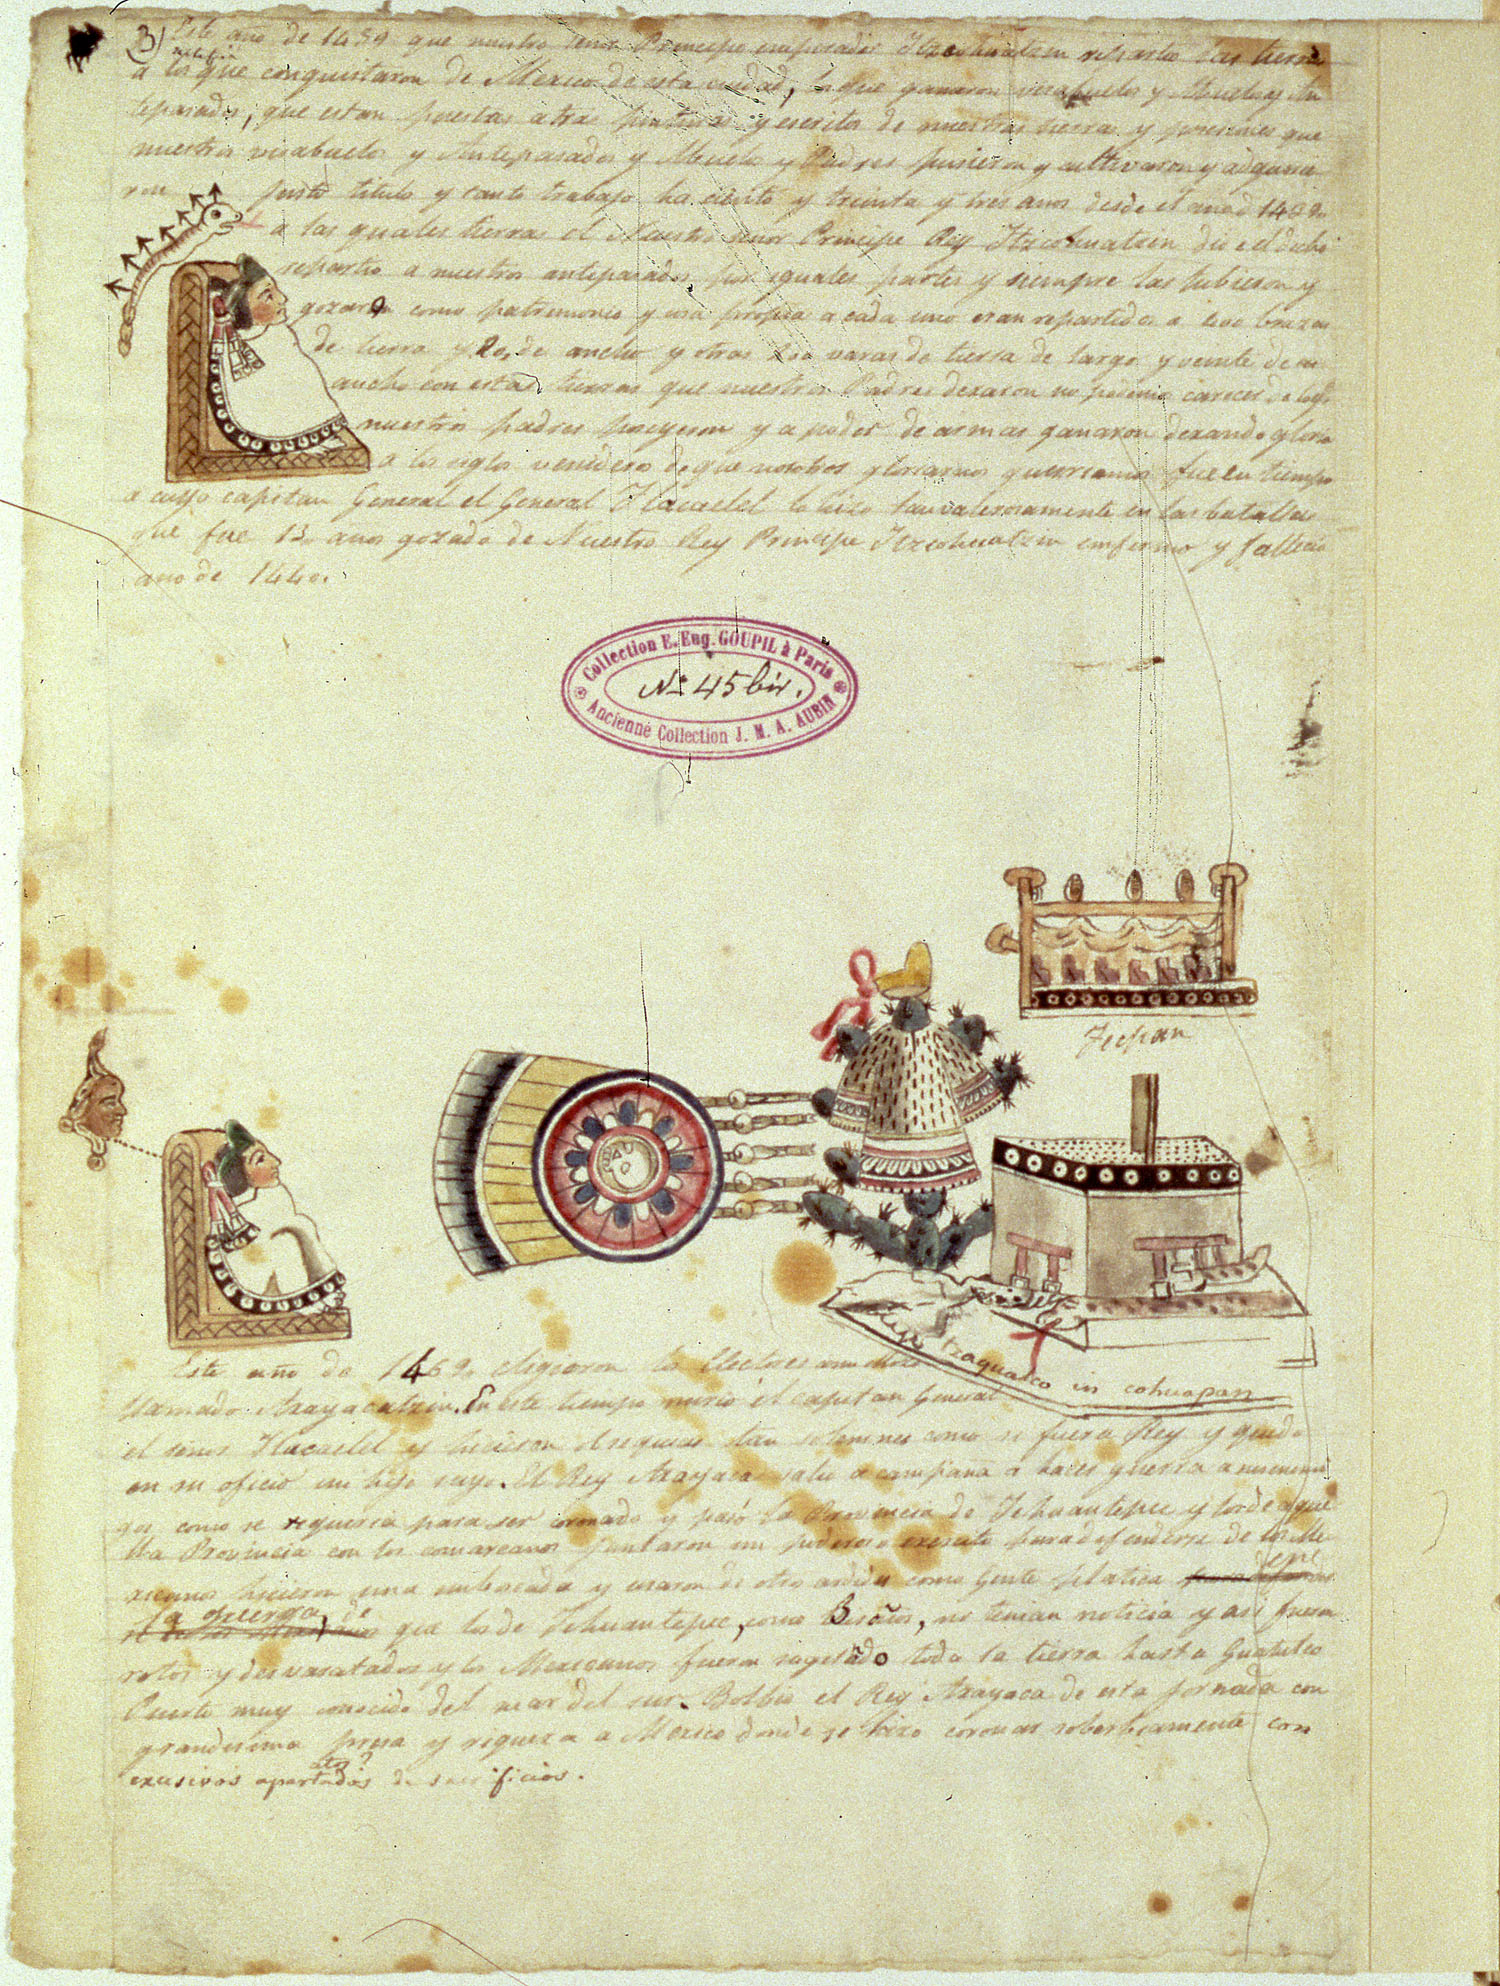 3) Este año de 1439 que nuestro señor Principe emperador Itzcohuatzin repartio las tierras
a los que conquistaron de Mexico de esta ciudad, lo que ganaron visabuelos y Abuelos y An
tepasados, que estan puestas atras pinturas y escritos de nuestras tierras y poseciones que
nuestros visabuelos y Antepasados y Abuelos y Padres pusieron y cultivaron y adquirie
ron justo titulo y tanto trabajo ha ciento y treinta y tres anos desde el ano d 1439
a las quales tierras el Nuestro señor Principe Rey Itzcohuatzin dio e el dicho
repartio a nuestros antepasados por iguales partes y siempre las tubieron y
gozaron como patrimonio y cosa propia a cada uno eran repartidos a brazas
de tierra y 20, de ancho y otras 200 varas de tierra de largo y veinte de
ancho con estas tierras que nuestros Padres dexaron no podemos carecer de
nuestros padres poseyeron y a poder de armas ganaron dexando gloria
a los siglos venideros de que nosotros gloriarnos fue en tiempo
a cuyo capitan General el General Tlacaelel lo hizo tan valerosamente en las batallas
que fue 13 anos gozado de Nuestro Rey Principe Itzcohuatzin enfermo y fallecio
ano de 1440.
Collection E. Eug. GOUPIL à Paris
Nº 45 bis.
Ancienne Collection J. M. A. AUBIN
Tecpan
tzaqualco in cohuapan
Este año de 1469. eligieron los Electores a un Mozo
llamado Axayacatzin. En este tiempo murio el capitan General
el señor Tlacaelel y hicieron obsequias tan solemnes como si fuera Rey y quedo
en su oficio un hijo suyo. El Rey Axayaca salio a campaña a hacer guerra a
como se requeria para ser coronado y pasó la Provincia de Tehuantepec y los de aque
lla Provincia con los comarcanos juntaron un poderoso exercito para defenderse de los Me
xicanos hicieron una emboscada y usaron de otro ardid como Gente platica en
la guerra, de que los de Tehuantepec, como Bisoños, no tenian noticia y asi fueron
rotos y desvaratados y los Mexicanos fueron sugetando toda la tierra hasta Guatulco
Puerto muy conocido del mar del sur. Bolbio el Rey Axayaca de esta jornada con
grandisima presa y riqueza a Mexico donde se hizo coronar soberbiamente con
excesivos apartados de sacrificios.